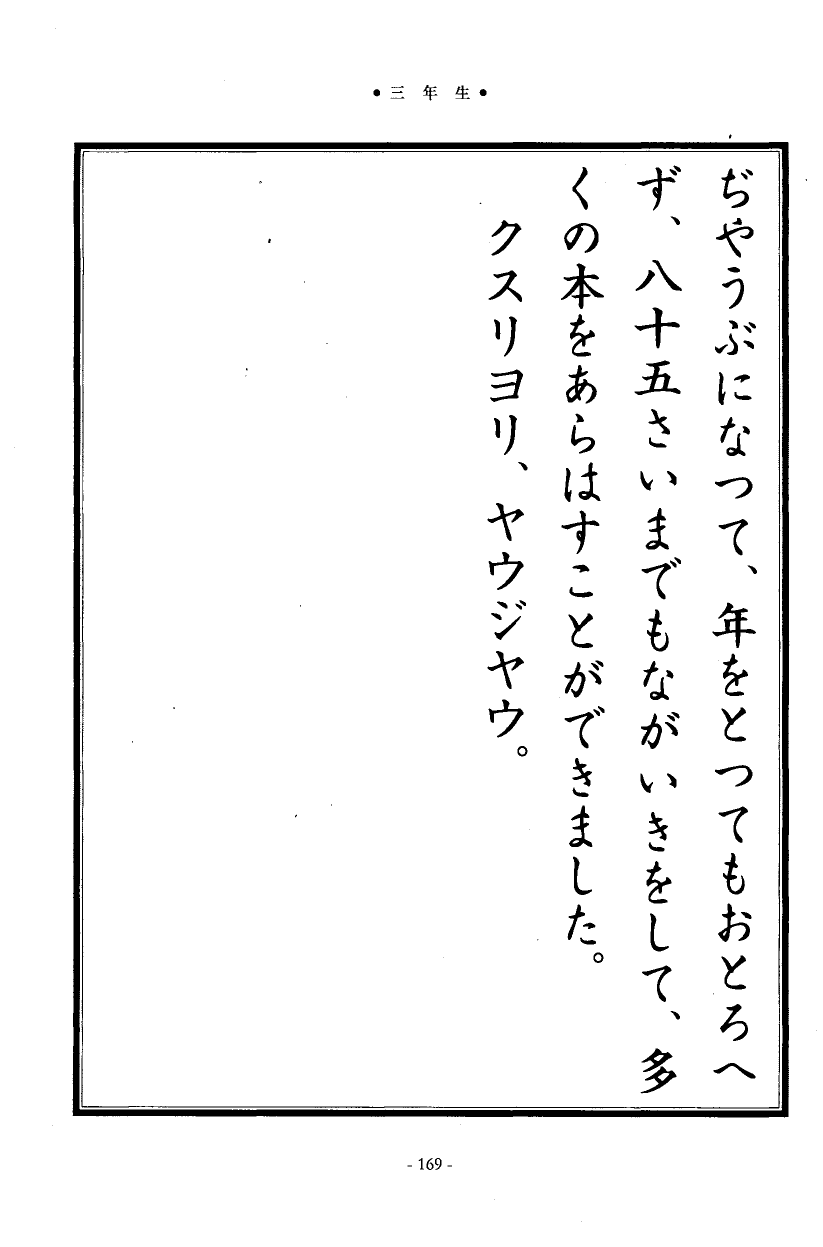 ●三年生●
ぢやうぶになつて、年をとつてもおとろへ
ず、八十五さいまでもながいきをして、多
くの本をあらはすことができました。
クスリヨリ、ヤウジヤウ。
- 169 -